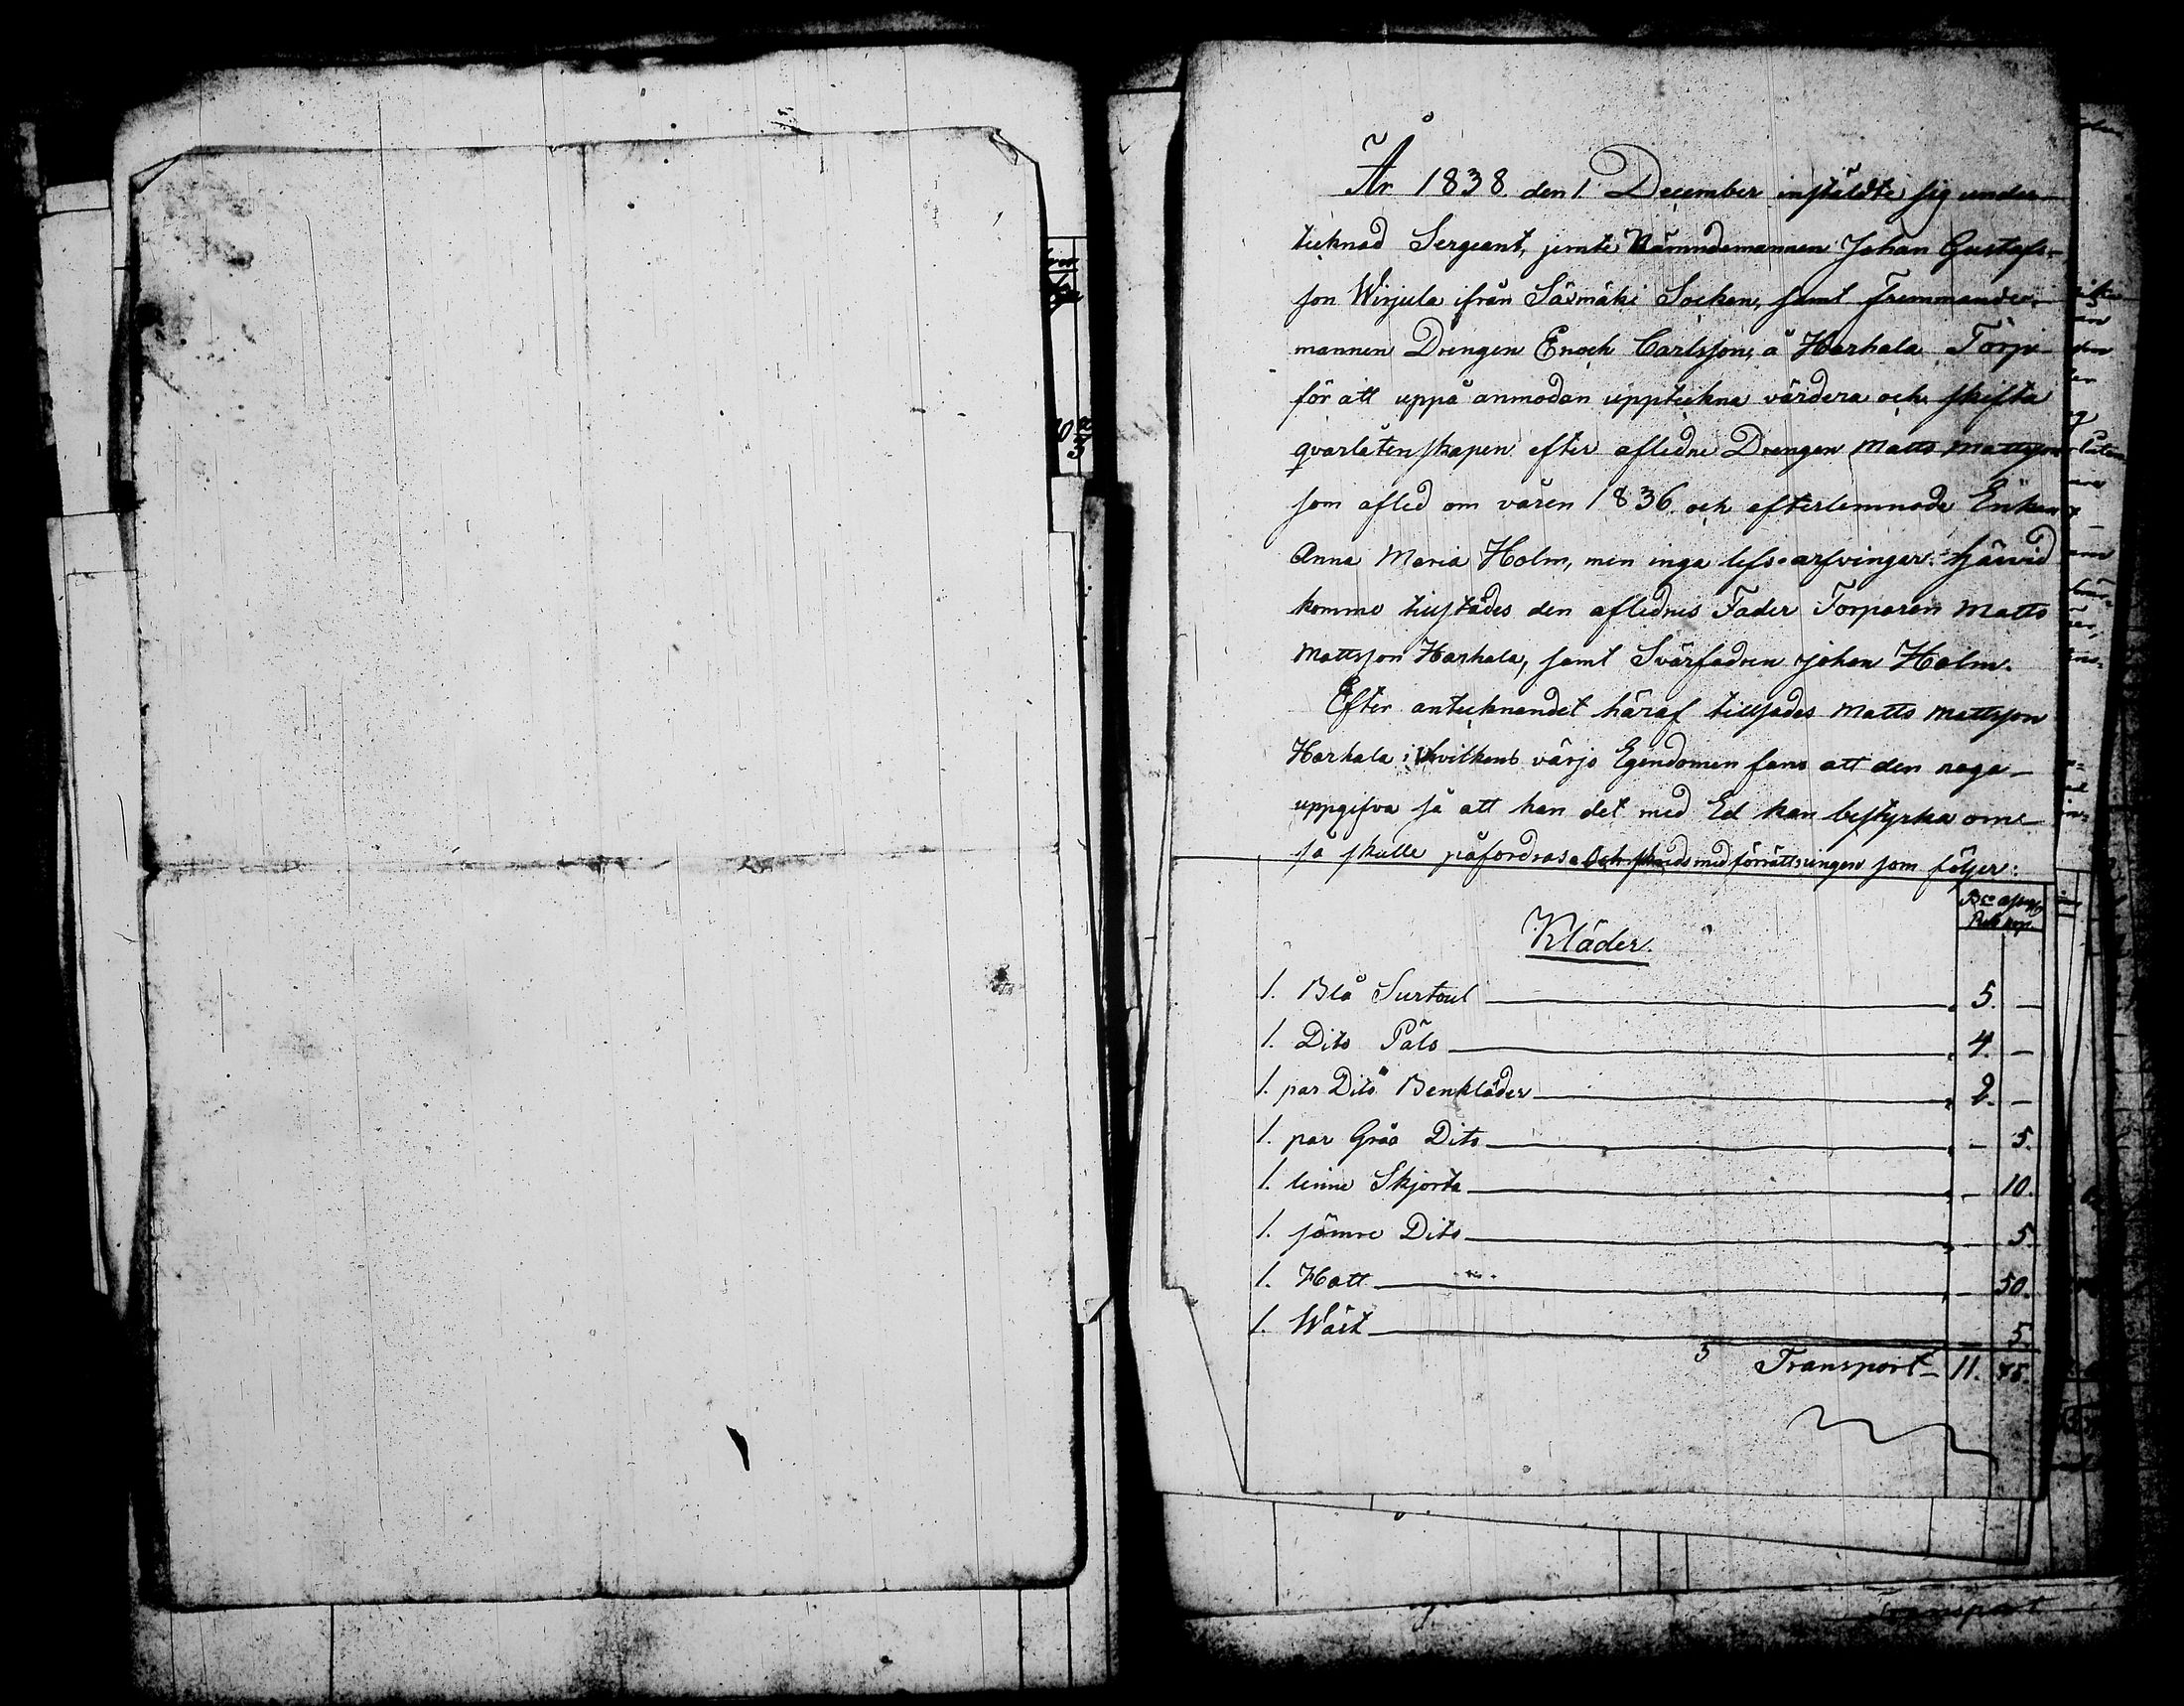 År 1838 den 1. December instäldte sig under-
tecknad Sergeant, jemte Nämndemannen Johan Gustafs-
son Wirjula ifrån Säxmäki Socken, samt Fremmande-
mannen Drengen Enoch Carlsson, å Harhala Torp
för att uppå anmodan uppteckna värdera och skifta
qvarlåtenskapen efter aflidne Drengen Matts Mattsson
som afled om våren 1836 och efterlemnade Enkan
Anna Maria Holm, men inga lifs-arfvingar. Härvid
kommo tillstädes den aflidnes Fader Torparen Matts
Mattsson Harhala, samt Svärfadren Johan Holm.
Efter antecknandet häraf tillsades Matts Mattsson
Harhala i hvilkens värjo Egendomen fans att den noga
uppgifva så att han det med Ed kan bestyrka om
så skulle påfordras. Och skreds med förrättningen som följer:
Kläder.
1. Blå Surtout 5. —
1. Dito Päls 4. —
1. par Dito Benkläder 2. —
1. par Gråa Dito — 5.
1. linne Skjorta — 10.
1. sämre Dito — 5.
1. Hatt — 50.
1. Wäst — 5.
Transport 11. 75.
Transport